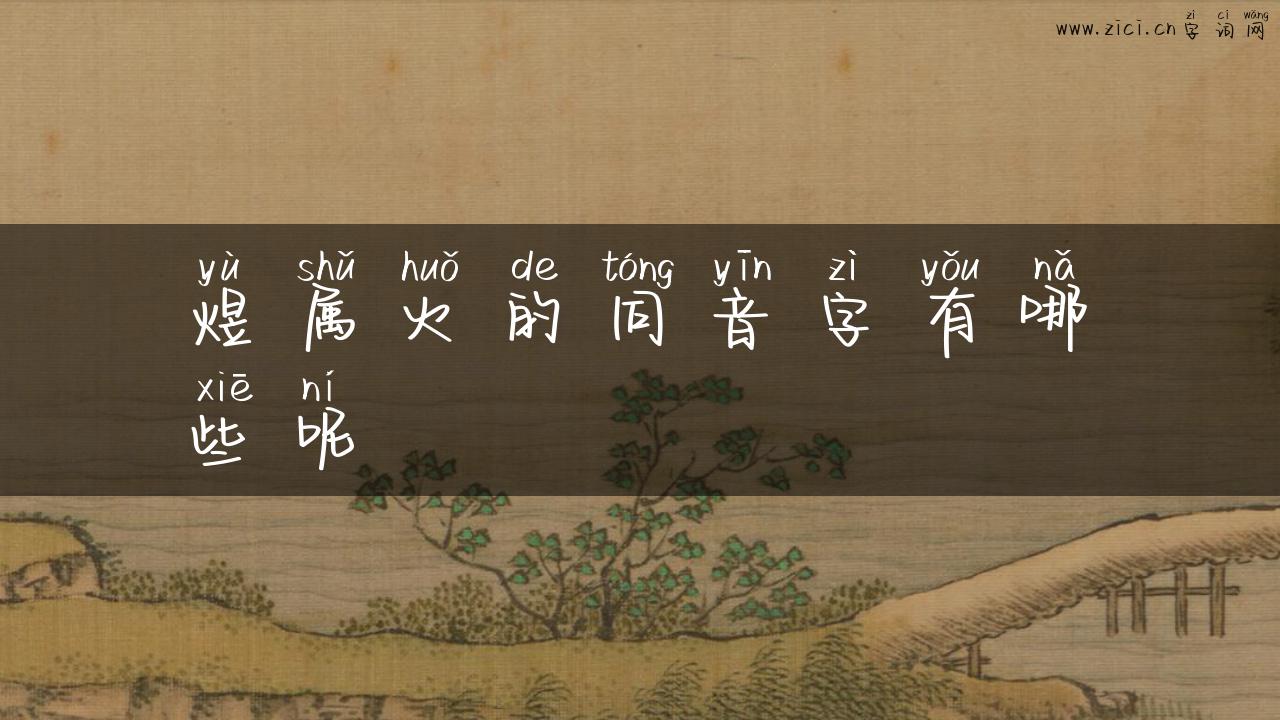 zì cí wǎng
www.zici.cn 字词网
yù shǔ huǒ de tóng yīn zì yǒu nǎ
煜属火的同音字有哪
xiē ní
些呢